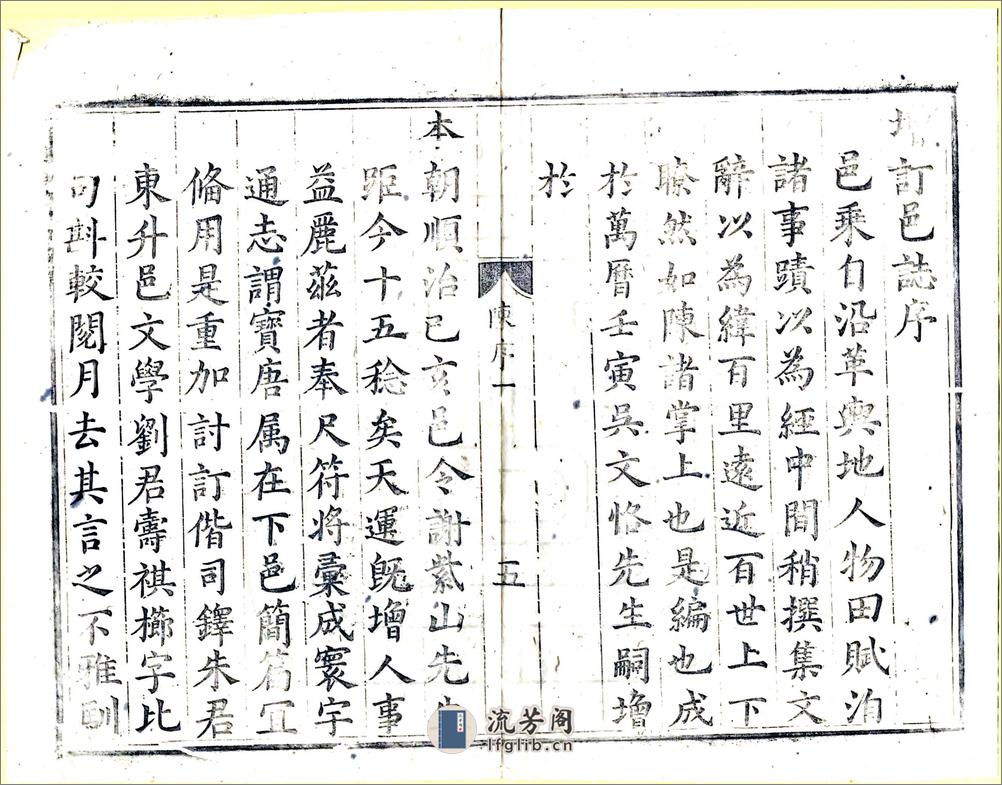 增訂邑誌序
邑乘自沿革輿地人物田賦洎
諸事蹟以為經中間稍撰集文
辭以為緯百里遠近百世上下
瞭然如陳諸掌上也是編也成
於萬曆壬寅吳文恪先生嗣增
於
陳序一
五
本朝順治己亥邑令謝紫山先生
距今十五稔矣天運旣增人事
益麗茲者奉尺符將彙成寰宇
通志謂寶唐属在下邑簡笥宜
俻用是重加討訂偕司鐸朱君
東升邑文學劉君壽祺櫛字比
句斟較閱月去其言之不雅馴
流芳阁
lfglib.cn